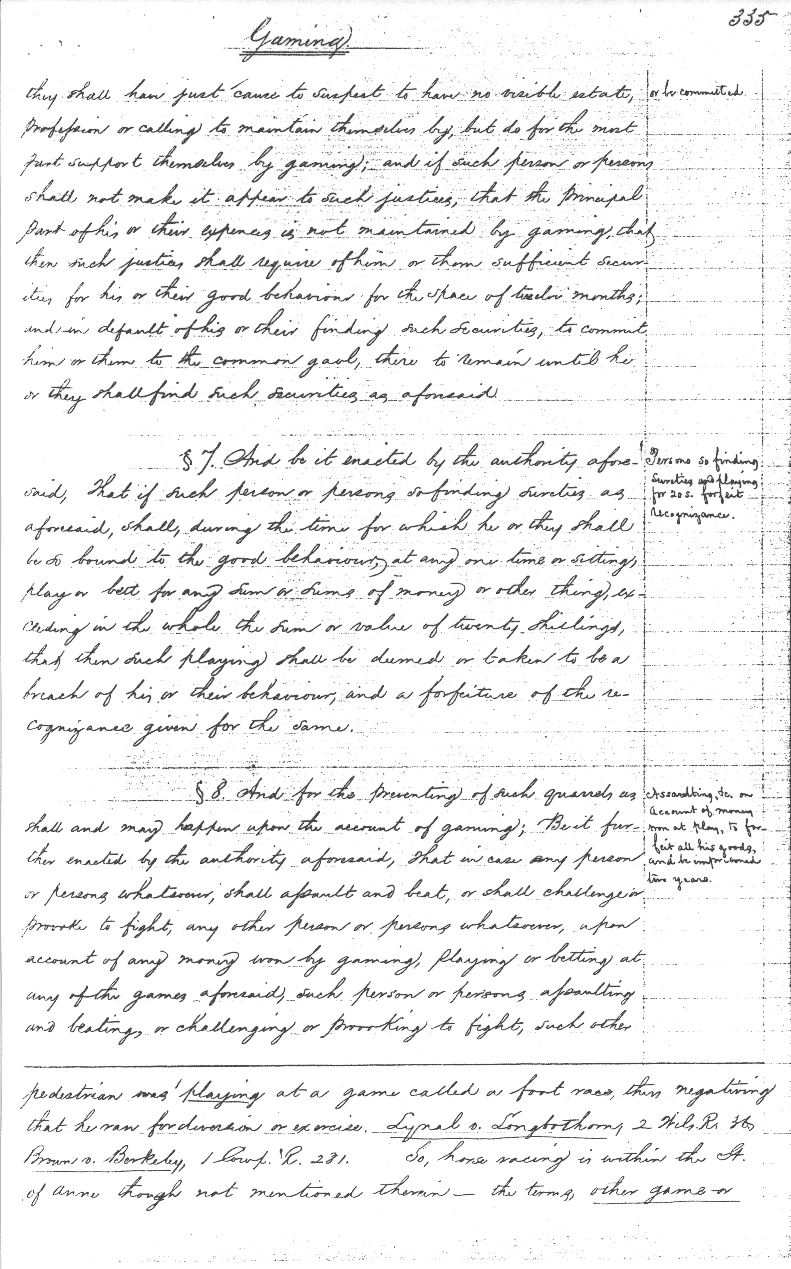 335
Gaming.
they shall have just cause to suspect to have no visible estate,
profession or calling to maintain themselves by, but do for the most
part support themselves by gaming; and if such person or persons
shall not make it appear to such justices, that the principal
part of his or their expences is not maintained by gaming, that
then such justices shall require of him or them sufficient secur-
ities for his or their good behaviour for the space of twelve months;
and in default of his or their finding such securities, to commit
him or them to the common gaol, there to remain until he
or they shall find such securities as aforesaid
or be committed.
§ 7. And be it enacted by the authority afore-
said, That if such person or persons so finding sureties as
aforesaid, shall, during the time for which he or they shall
be so bound to the good behaviour, at any one time or sitting,
play or bett for any sum or sums of money or other thing, ex-
ceeding in the whole the sum or value of twenty shillings,
that then such playing shall be deemed or taken to be a
breach of his or their behaviour, and a forfeiture of the re-
cognizance given for the same.
Persons so finding
sureties and playing
for 20s. forfeit
recognizance.
§ 8. And for the preventing of such quarrels as
shall and may happen upon the account of gaming; Be it fur-
ther enacted by the authority aforesaid, That in case any person
or persons whatsoever, shall assault and beat, or shall challenge or
provoke to fight, any other person or persons whatsoever, upon
account of any money won by gaming, playing or betting at
any of the games aforesaid, such person or persons assaulting
and beating, or challenging or provoking to fight, such other
Assaulting, &c. on
account of money
won at play, to for-
feit all his goods,
and be imprisoned
two years.
pedestrian was playing at a game called a foot race, thus negativing
that he ran for diversion or exercise. Lynal v. Longbothom, 2 Wils. R. 36,
Brown v. Berkeley, 1 Cowp. R. 281. So, horse racing is within the St.
of Anne though not mentioned therein — the terms, other game or